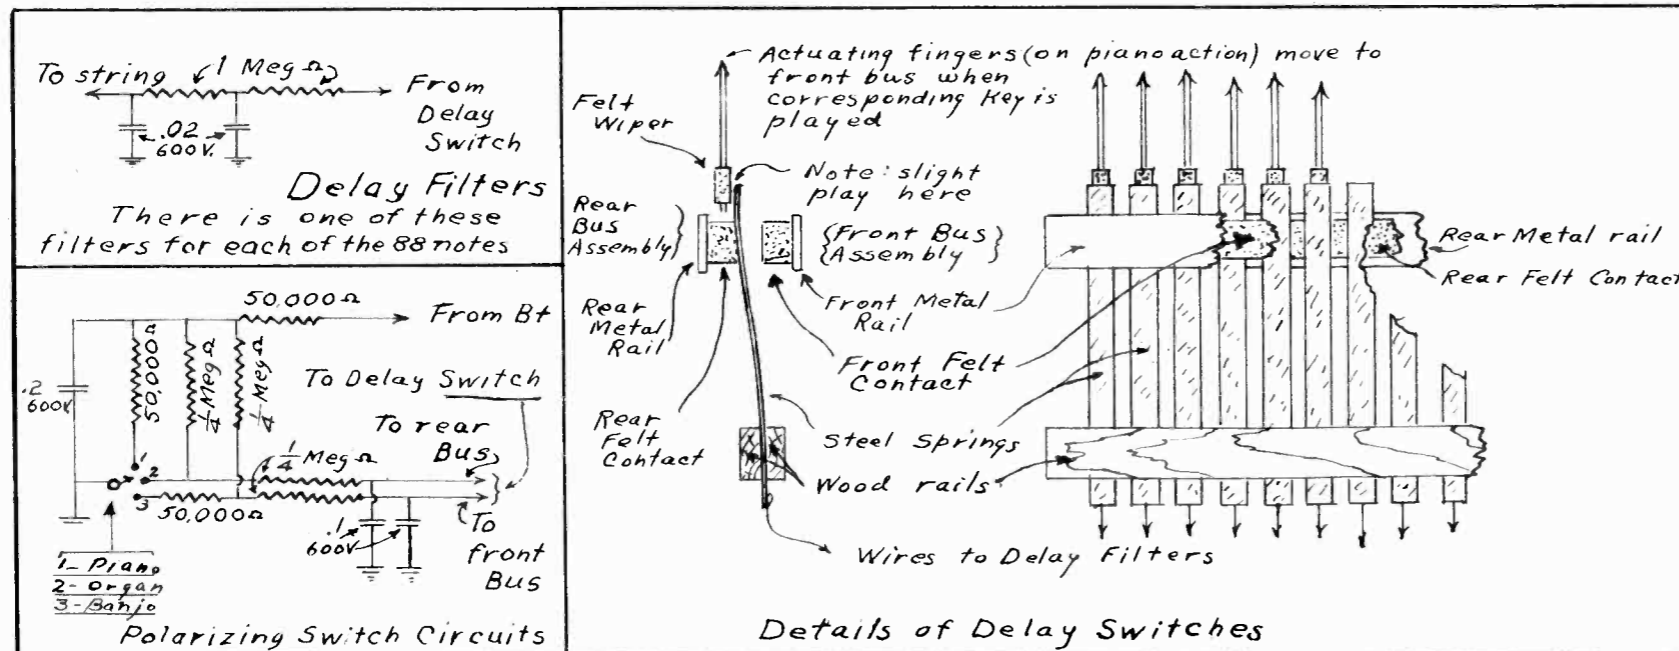 To string
1 Meg Ω
From
Delay
Switch
.02
600V.
Delay Filters
There is one of these
filters for each of the 88 notes
50,000Ω
From B+
.2
600V
50,000Ω
1/4 Meg Ω
1/4 Meg Ω
To Delay Switch
To rear
Bus
1/4 Meg Ω
1
2
3
50,000Ω
.1
600V
To
front
Bus
1- Piano
2- Organ
3- Banjo
Polarizing Switch Circuits
Actuating fingers (on piano action) move to
front bus when
corresponding key is
played
Felt
Wiper
Note: slight
play here
Rear
Bus
Assembly
(Front Bus
Assembly)
Rear
Metal
Rail
Front Metal
Rail
Rear Metal rail
Rear Felt Contact
Front Felt
Contact
Rear
Felt
Contact
Steel Springs
Wood rails
Wires to Delay Filters
Details of Delay Switches